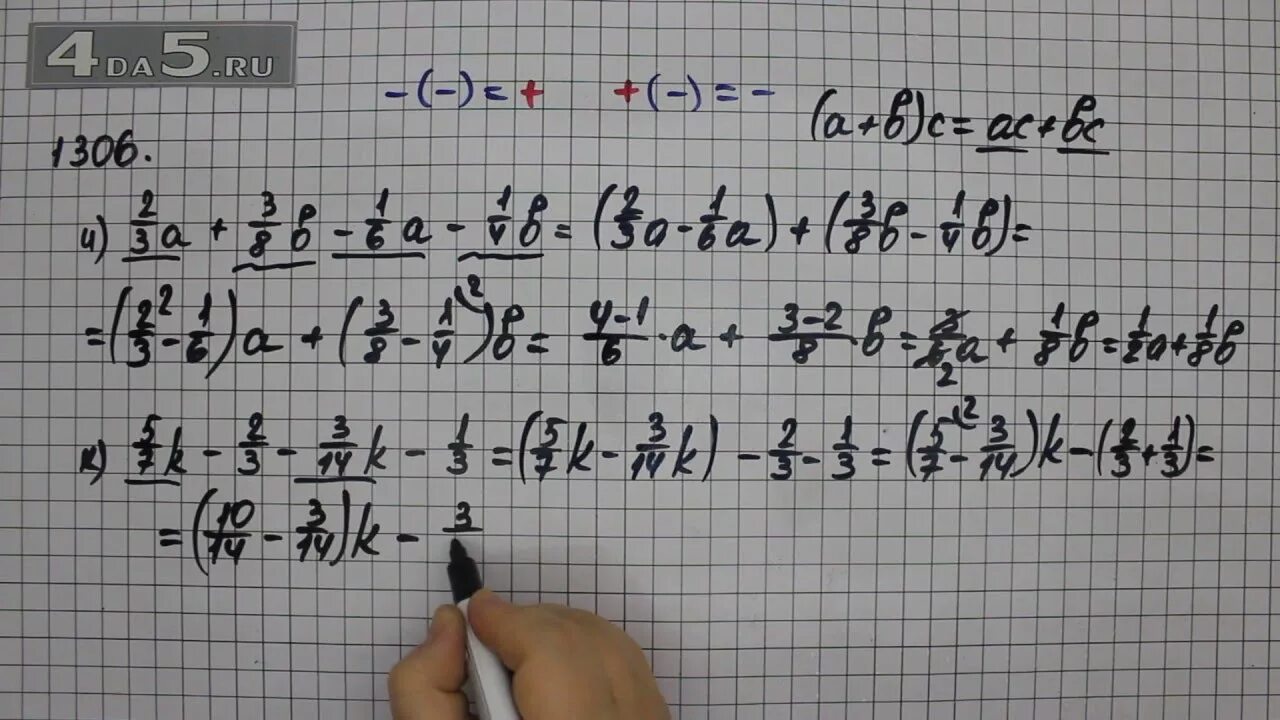 4DA5.RU
-(-)=+ +(-)=-
(a+b)c=ac+bc
1306.
и) 2/3 a + 3/8 b - 1/6 a - 1/4 b = (2/3 a - 1/6 a) + (3/8 b - 1/4 b) =
= (2/3 ² - 1/6) a + (3/8 - 1/4 ²) b = (4-1)/6 · a + (3-2)/8 · b = 3/6 2 a + 1/8 b = 1/2 a + 1/8 b
к) 5/7 k - 2/3 - 3/14 k - 1/3 = (5/7 k - 3/14 k) - 2/3 - 1/3 = (5/7 ² - 3/14) k - (2/3 + 1/3) =
= (10/14 - 3/14) k - 3/